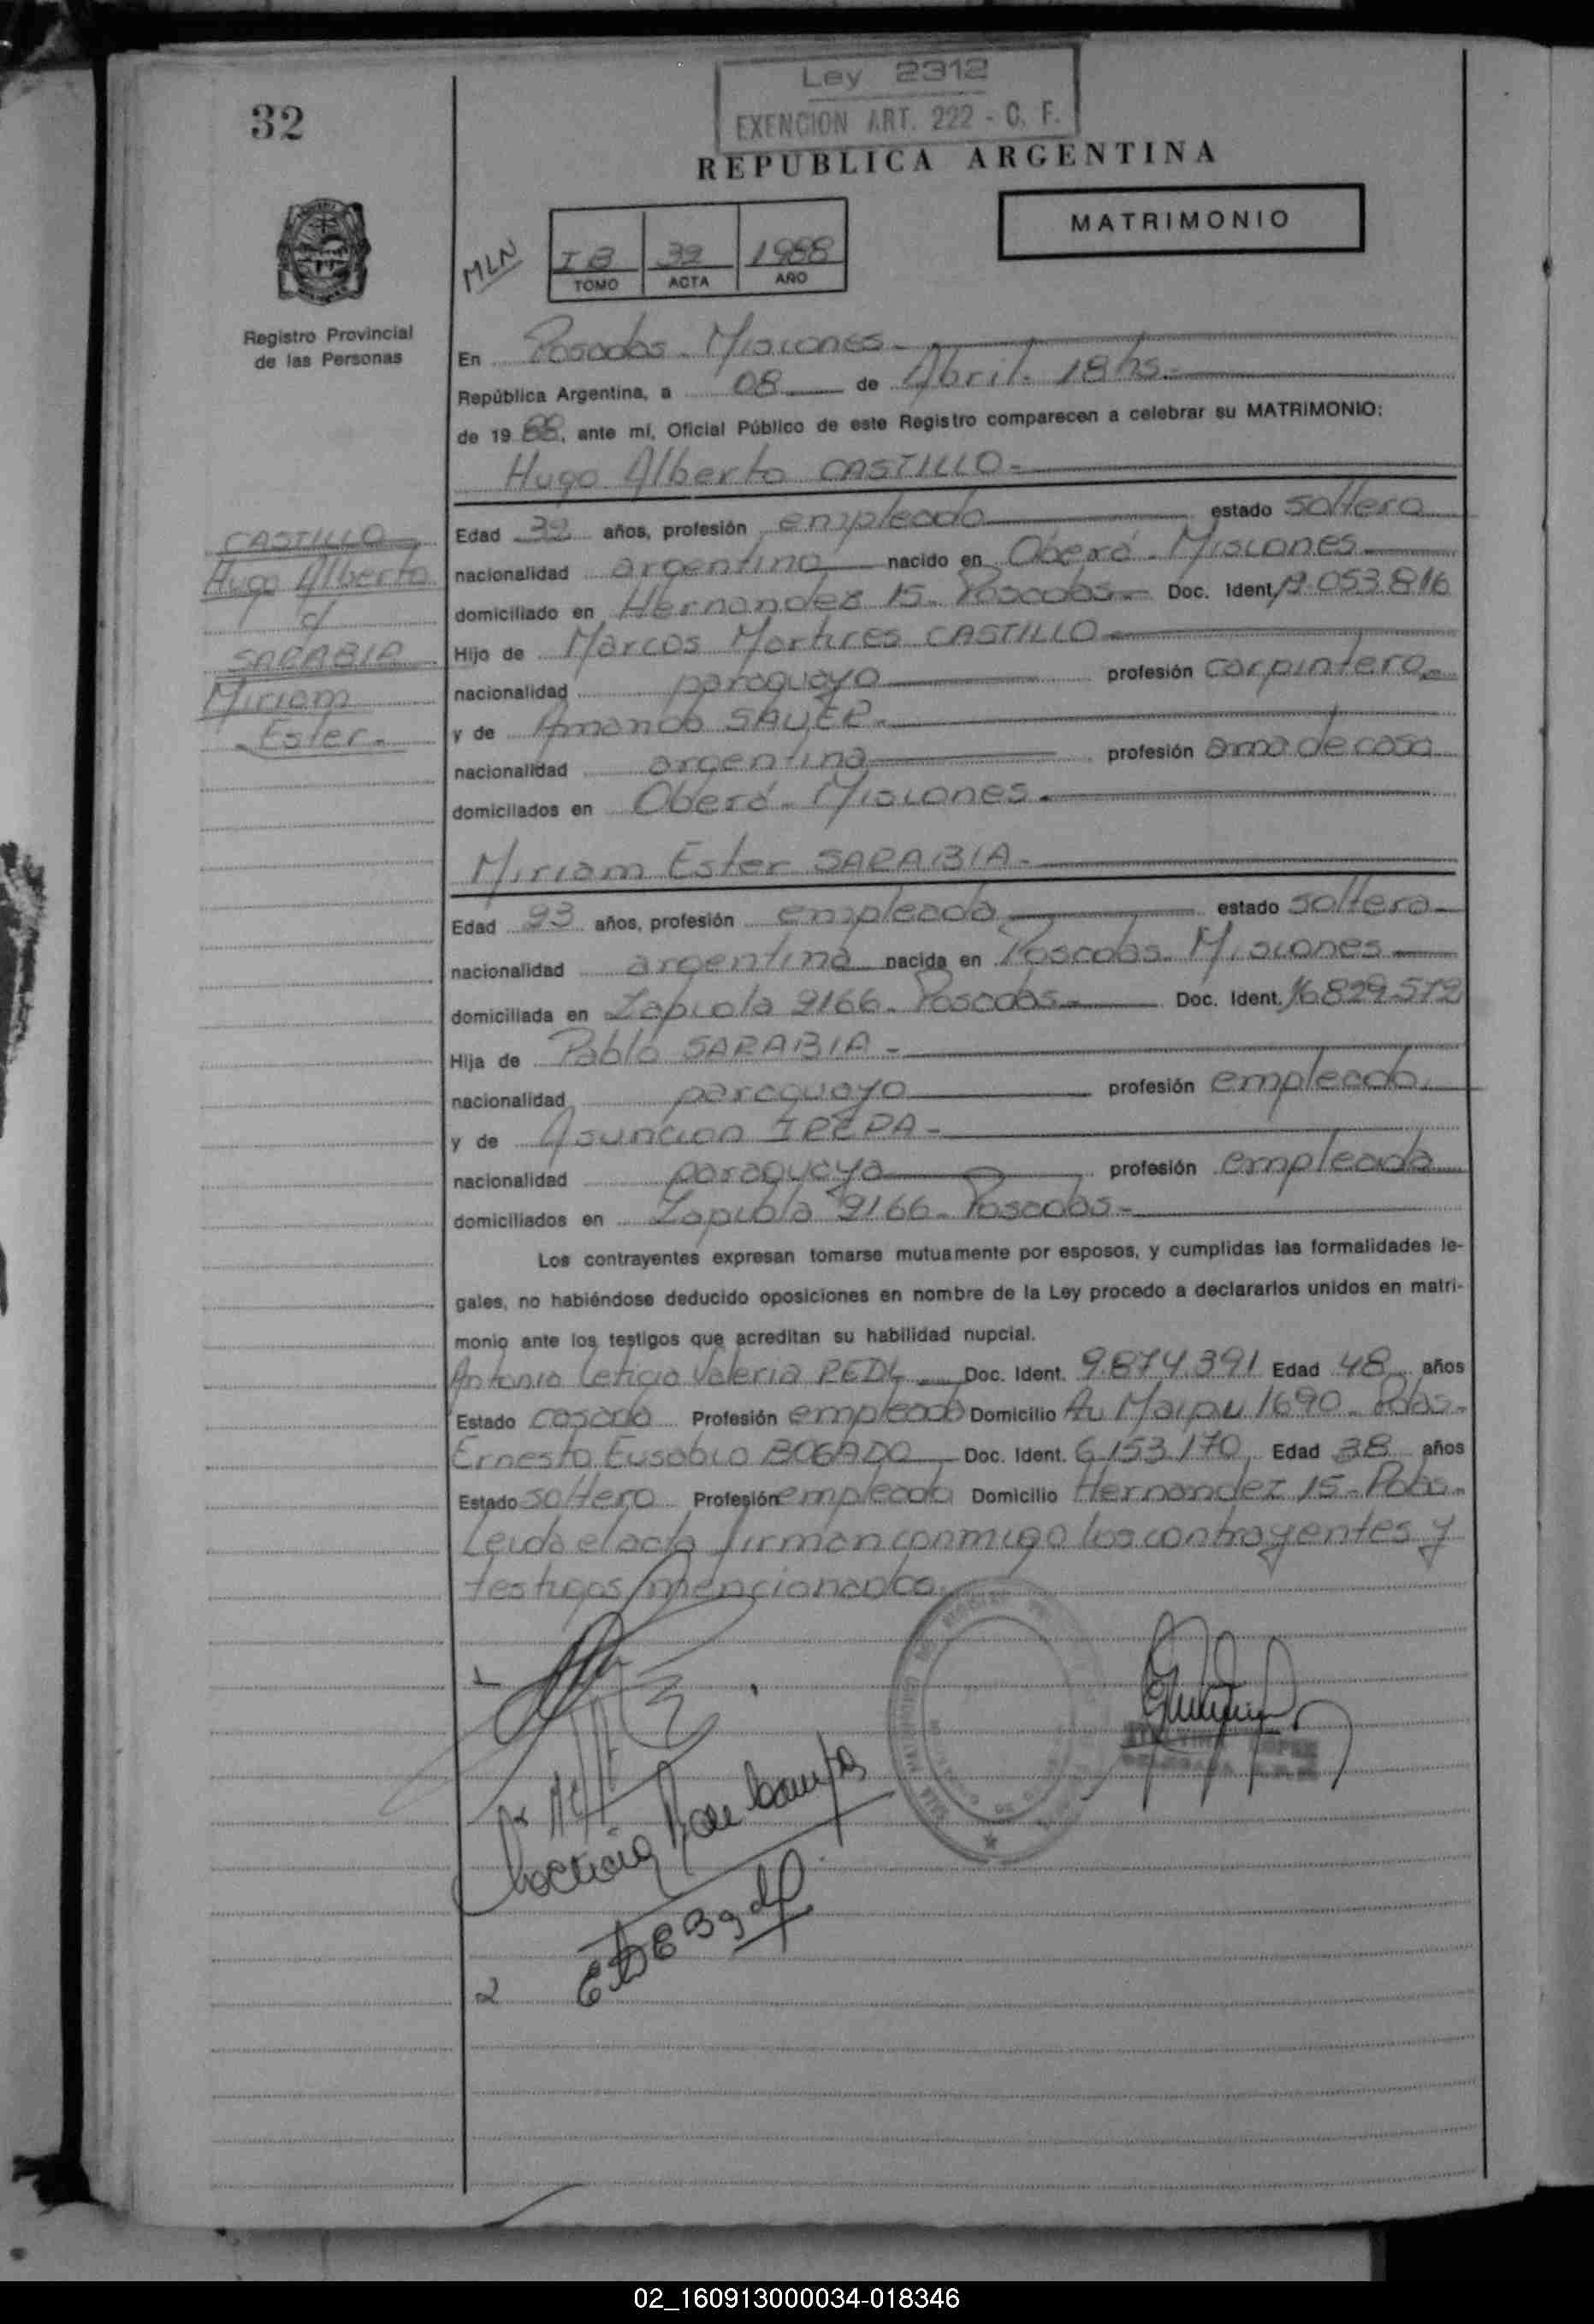 Ley 2312
EXENCION ART. 222 - C. F.
32
REPUBLICA ARGENTINA
MATRIMONIO
MLN
I B 32 1988
TOMO ACTA AÑO
Registro Provincial
de las Personas
En Posadas - Misiones
República Argentina, a 08 de Abril - 18 hs.
de 19 88, ante mí, Oficial Público de este Registro comparecen a celebrar su MATRIMONIO:
Hugo Alberto CASTILLO
CASTILLO
Hugo Alberto
c/
SARABIA
Miriam
Ester
Edad 32 años, profesión empleado estado soltero
nacionalidad argentino nacido en Oberá - Misiones
domiciliado en Hernandez 15 - Posadas Doc. Ident. 053.816
Hijo de Marcos CASTILLO
nacionalidad paraguayo profesión carpintero
y de SAUER
nacionalidad argentina profesión ama de casa
domiciliados en Oberá - Misiones
Miriam Ester SARABIA
Edad 23 años, profesión empleada estado soltera
nacionalidad argentina nacida en Posadas - Misiones
domiciliada en Lapiola 2166 - Posadas Doc. Ident. 16.829.572
Hija de Pablo SARABIA
nacionalidad paraguayo profesión empleado
y de Asuncion
nacionalidad paraguaya profesión empleada
domiciliados en Lapiola 2166 - Posadas
Los contrayentes expresan tomarse mutuamente por esposos, y cumplidas las formalidades le-
gales, no habiéndose deducido oposiciones en nombre de la Ley procedo a declararlos unidos en matri-
monio ante los testigos que acreditan su habilidad nupcial.
Antonia Leticia Valeria REDL Doc. Ident. 9.874.391 Edad 48 años
Estado casada Profesión empleada Domicilio Av Maipu 1690 - Pdas -
Ernesto Eusebio BOGADO Doc. Ident. 6.153.170 Edad 38 años
Estado soltero Profesión empleado Domicilio Hernandez 15 - Pdas -
Leida el acta firman conmigo los contrayentes y
testigos mencionados
02_160913000034-018346